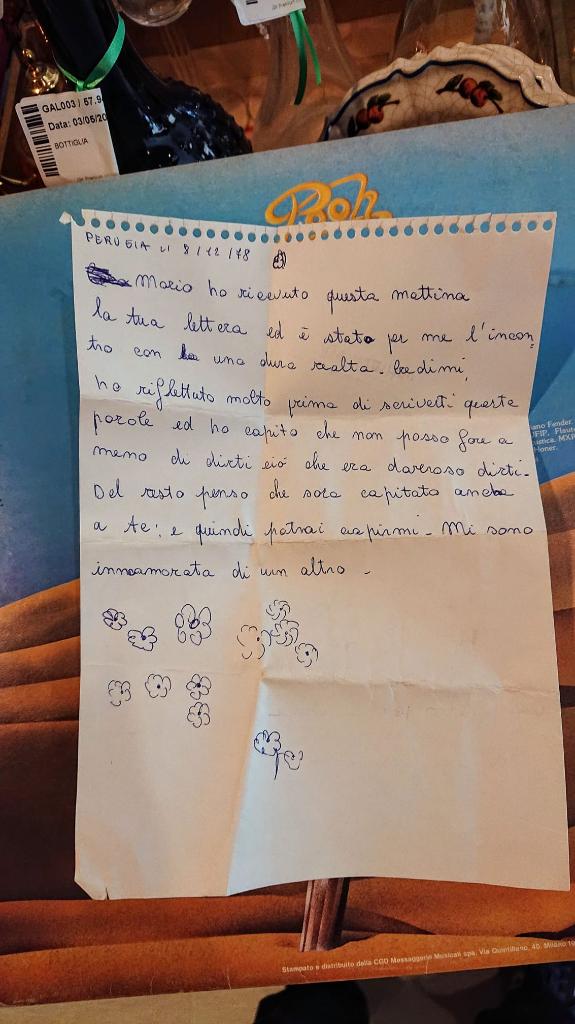 GAL003 / 57.9
Data: 03/05/20
BOTTIGLIA
Pooh
PERUGIA LI 8/12/78
Mario ho ricevuto questa mattina
la tua lettera ed è stato per me l'incon
tro con una dura realta. Credimi,
ho riflettuto molto prima di scriverti queste
parole ed ho capito che non posso fare a
meno di dirti ciò che era doveroso dirti.
Del resto penso che sara capitato anche
a te; e quindi potrai capirmi. Mi sono
innamorata di un altro.
ano Fender
FIP. Flaut
ustica. MXP
Honer.
Stampato e distribuito dalla CGD Messaggerie Musicali spa, Via Quintiliano, 40, Milano 19